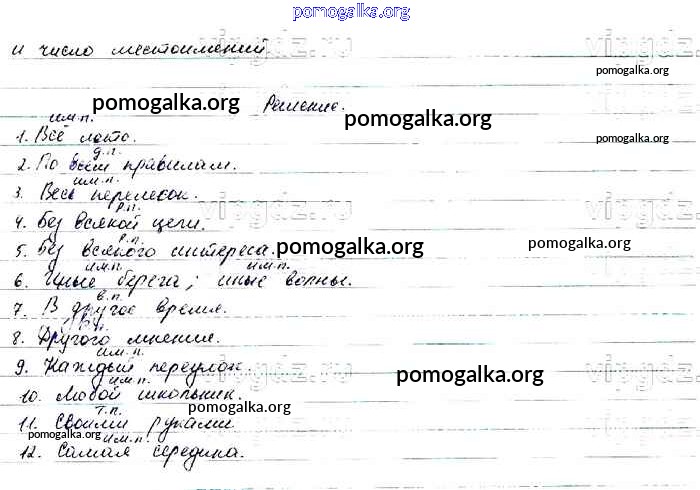 pomogalka.org
и число местоимений.
vipgdz.ru
vipgdz.ru
pomogalka.org
pomogalka.org
Решение.
pomogalka.org
pomogalka.org
им.п.
1. Всё лето.
д.п.
2. По всем правилам.
им.п.
3. Весь перелесок.
vipgdz.ru
vipgdz.ru
р.п.
4. Без всякой цели.
р.п.
5. Без всякого интереса.
pomogalka.org
pomogalka.org
им.п. им.п.
6. Иные берега; иные волны.
в.п.
7. В другое время.
р.п.
8. Другого мнения.
им.п.
9. Каждый переулок.
vipgdz.ru
vipgdz.ru
pomogalka.org
им.п.
10. Любой школьник.
pomogalka.org
т.п.
11. Своими руками
pomogalka.org
pomogalka.org
им.п.
12. Самая середина.